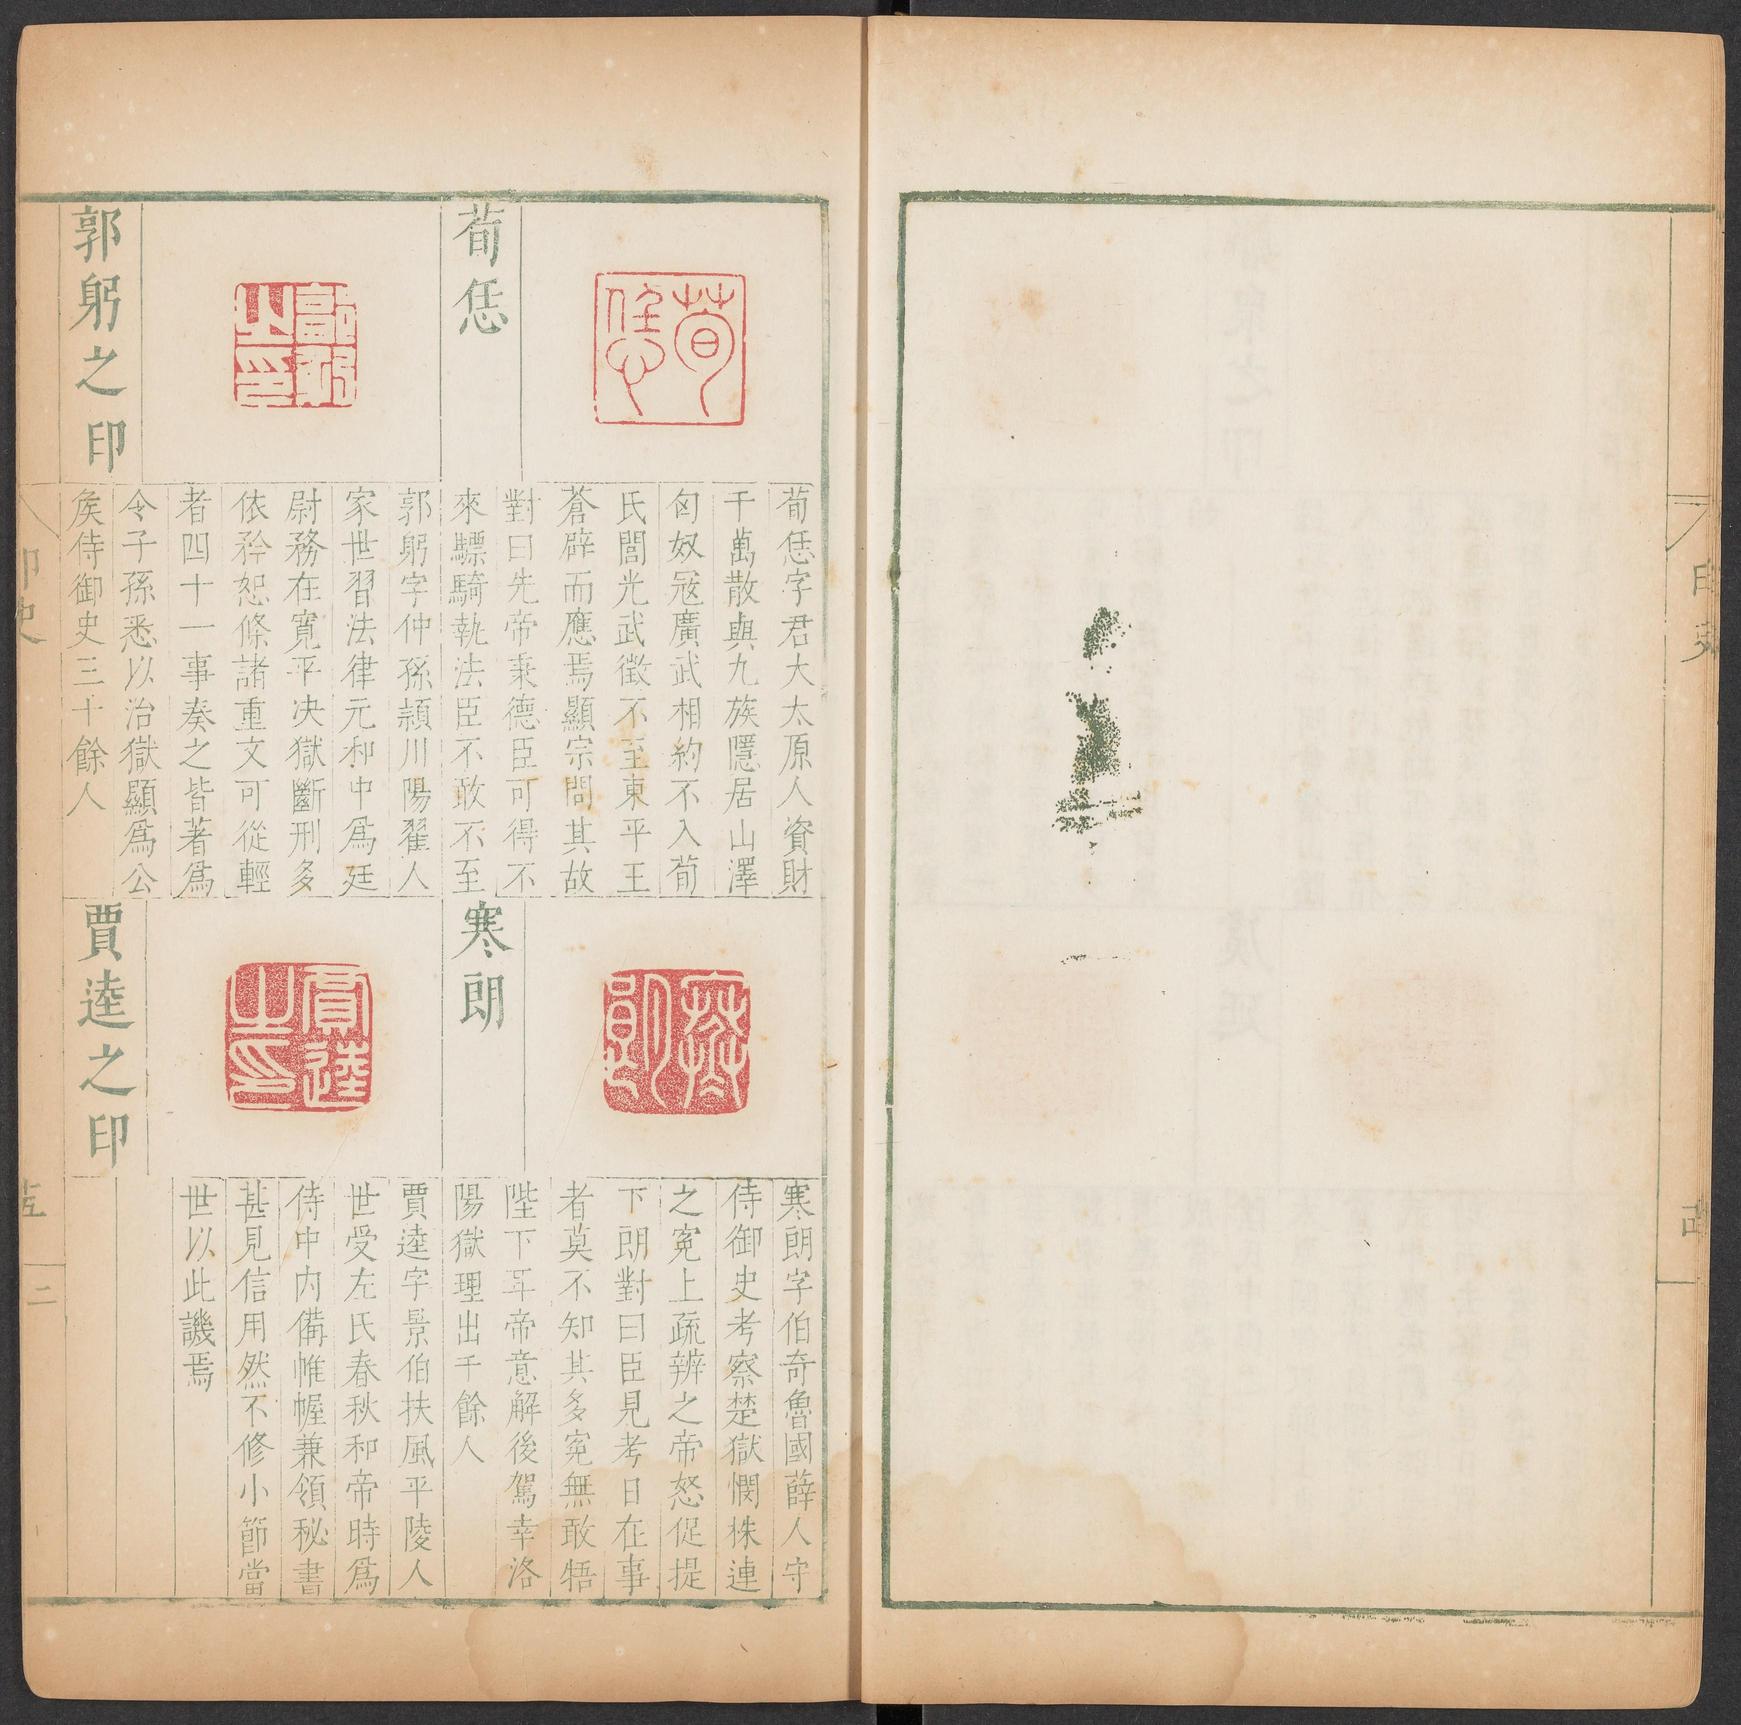 荀恁
荀恁字君大太原人資財
千萬散與九族隱居山澤
匈奴冦廣武相約不入荀
氏閭光武徵不至東平王
蒼辟而應焉顯宗問其故
對曰先帝秉德臣可得不
來驃騎執法臣不敢不至
郭躬之印
郭躬字仲孫潁川陽翟人
家世習法律元和中爲廷
尉務在寛平决獄斷刑多
依矜恕條諸重文可從輕
者四十一事奏之皆著爲
令子孫悉以治獄顯爲公
矦侍御史三十餘人
寒朗
寒朗字伯奇魯國薛人守
侍御史考察楚獄憫株連
之寃上疏辨之帝怒促提
下朗對曰臣見考囚在事
者莫不知其多寃無敢牾
陛下耳帝意解後駕幸洛
陽獄理出千餘人
賈逵之印
賈逵字景伯扶風平陵人
世受左氏春秋和帝時爲
侍中内備帷幄兼領秘書
甚見信用然不修小節當
世以此譏焉
印史
二